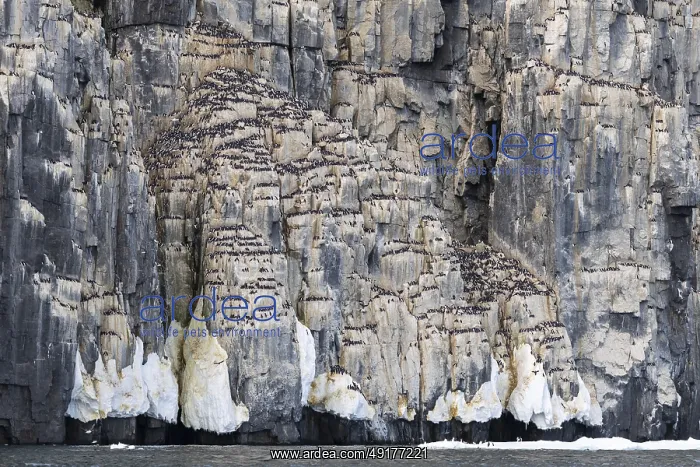 ardea
wildlife pets environment
ardea
wildlife pets environment
www.ardea.com/49177221